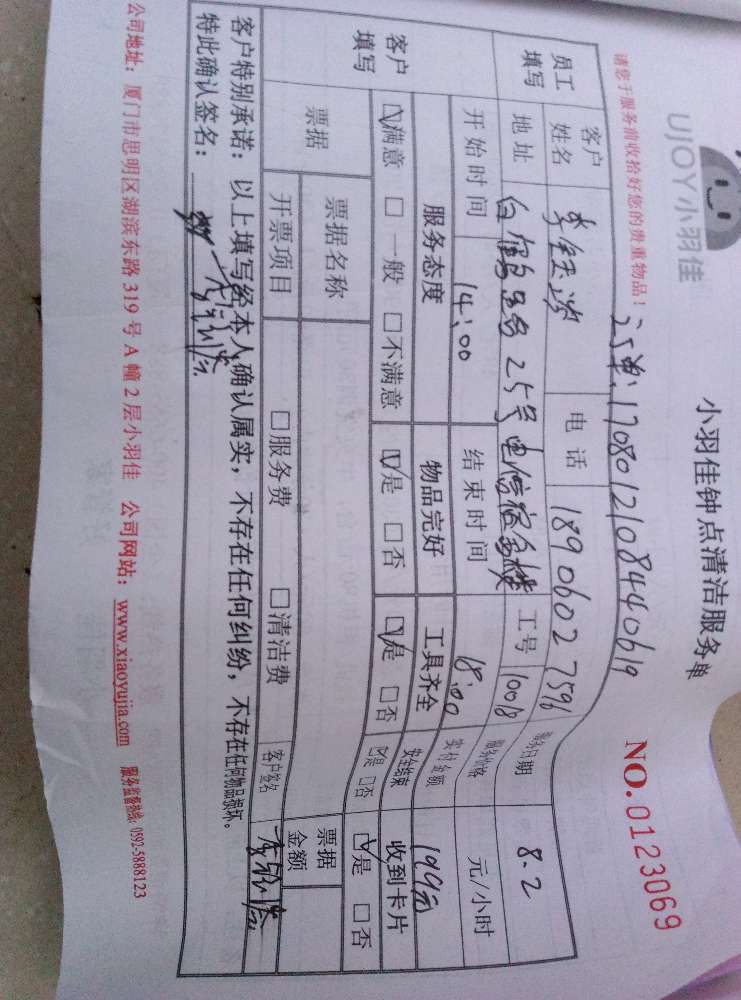 UJOY小羽佳
小羽佳钟点清洁服务单
NO.0123069
请您于服务前收拾好您的贵重物品！
订单:1708012108440619
员工填写
客户姓名 电话 18906027596 服务日期 8.2
地址 25号电信宿舍楼 工号 10018 服务价格 元/小时
开始时间 14:00 结束时间 18:00 实付金额 199元
客户填写
服务态度 物品完好 工具齐全 安全结束 收到卡片
☑满意 □一般 □不满意 ☑是 □否 ☑是 □否 ☑是 □否 ☑是 □否
票据 票据名称 票据金额
开票项目 □服务费 □清洁费 客户签名
客户特别承诺：以上填写经本人确认属实，不存在任何纠纷，不存在任何物品损坏。
特此确认签名：
公司地址：厦门市思明区湖滨东路 319 号 A 幢 2 层小羽佳 公司网站：www.xiaoyujia.com 服务监督热线:0592-5888123